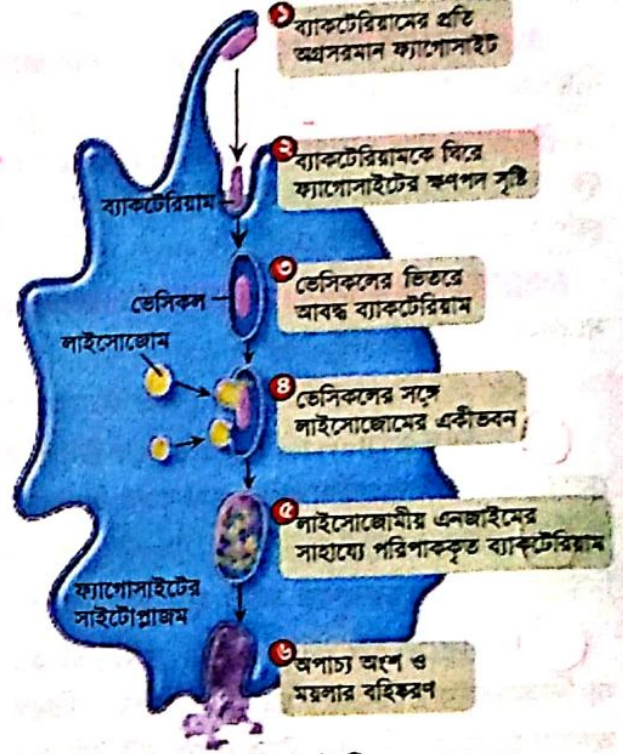 ১ ব্যাকটেরিয়ামের প্রতি
অগ্রসরমান ফ্যাগোসাইট
২ ব্যাকটেরিয়ামকে ঘিরে
ফ্যাগোসাইটের ক্ষণপদ সৃষ্টি
ব্যাকটেরিয়াম
৩ ভেসিকলের ভিতরে
আবদ্ধ ব্যাকটেরিয়াম
ভেসিকল
লাইসোজোম
৪ ভেসিকলের সঙ্গে
লাইসোজোমের একীভবন
৫ লাইসোজোমীয় এনজাইমের
সাহায্যে পরিপাককৃত ব্যাকটেরিয়াম
ফ্যাগোসাইটের
সাইটোপ্লাজম
৬ অপাচ্য অংশ ও
ময়লার বহিষ্করণ